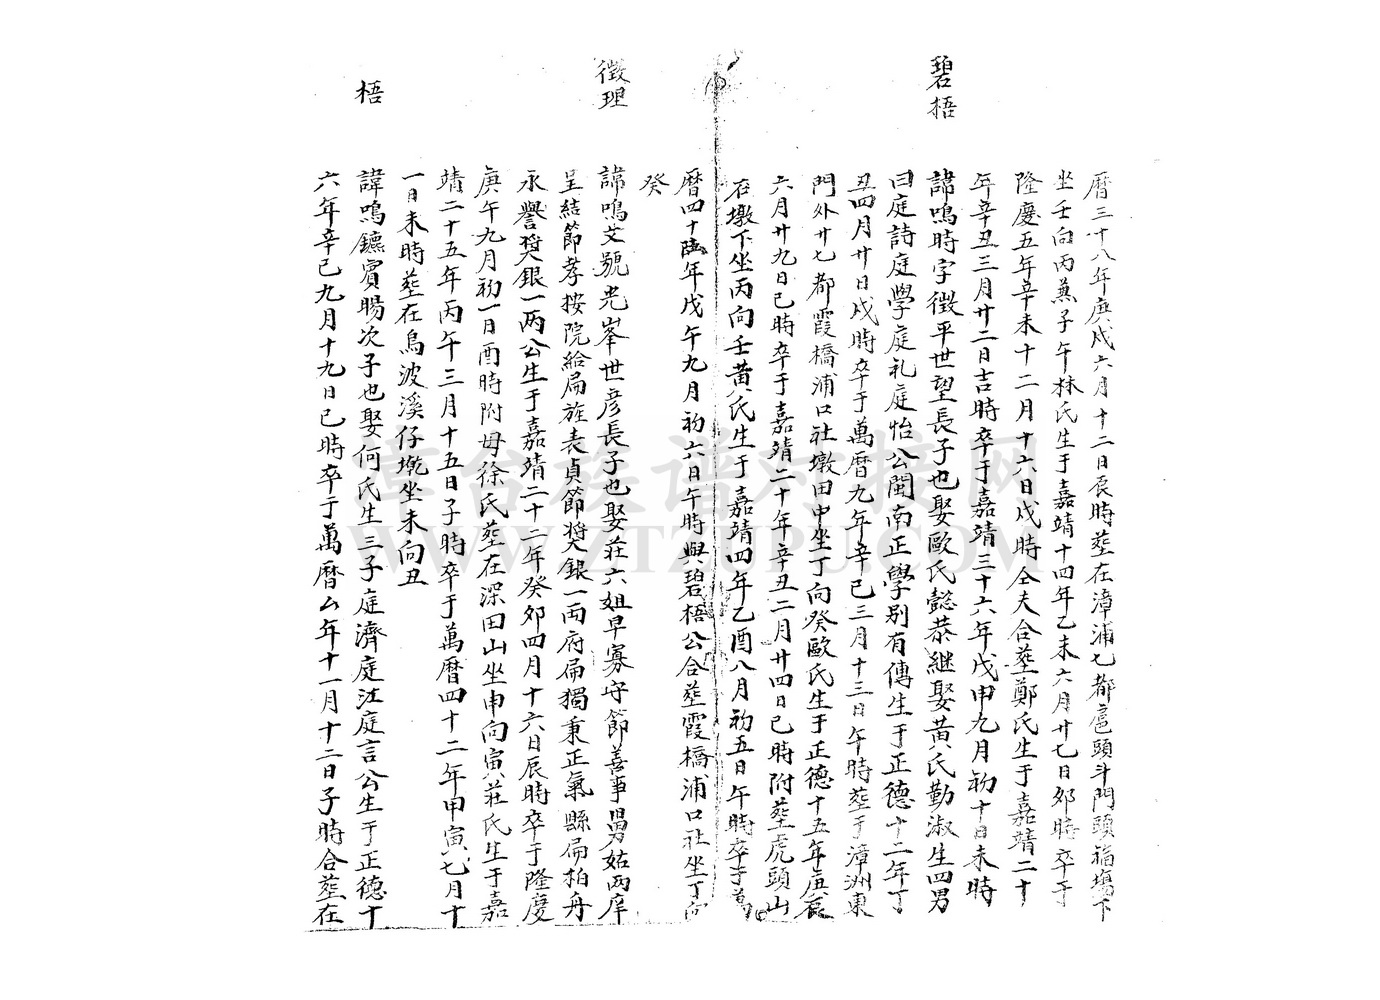 曆三十八年庚戌六月十二日辰時塟在漳浦七都扈頭斗門頭福塲下
坐壬向丙兼子午林氏生于嘉靖十四年乙未六月廿七日夘時卒于
隆慶五年辛未十二月十六日戌時仝夫合塟鄭氏生于嘉靖二十
年辛丑三月廿二日吉時卒于嘉靖三十六年戊申九月初十日未時
碧梧
諱鳴時字徵平世望長子也娶歐氏懿恭継娶黃氏勤淑生四男
曰庭詩庭學庭礼庭怡公閩南正學别有傳生于正德十二年丁
丑四月廿日戌時卒于萬曆九年辛巳三月十三日午時塟于漳洲東
門外廿七都霞橋浦口社墩田中坐丁向癸歐氏生于正德十五年庚辰
六月廿九日巳時卒于嘉靖二十年辛丑二月廿四日巳時附塟虎頭山
在墩下坐丙向壬黃氏生于嘉靖四年乙酉八月初五日午時卒于萬
曆四十陆年戊午九月初六日午時與碧梧公合塟霞橋浦口社坐丁向
癸
徵理
諱鳴艾號光峯世彦長子也娶莊六姐早寡守節善事舅姑両庠
呈結節孝按院給扁旌表貞節奬銀一両府扁獨秉正氣縣扁柏舟
永譽奬銀一両公生于嘉靖二十二年癸夘四月十六日辰時卒于隆慶
庚午九月初一日酉時附母徐氏塟在深田山坐申向寅莊氏生于嘉
靖二十五年丙午三月十五日子時卒于萬曆四十二年甲寅七月十
一日未時塟在烏波溪仔墘坐未向丑
梧
諱鳴鑣賓暘次子也娶何氏生三子庭濟庭江庭言公生于正德十
六年辛巳九月十九日巳時卒于萬曆厶年十一月十二日子時合塟在
漳台族谱对接网
WWW.ZTZUPU.COM